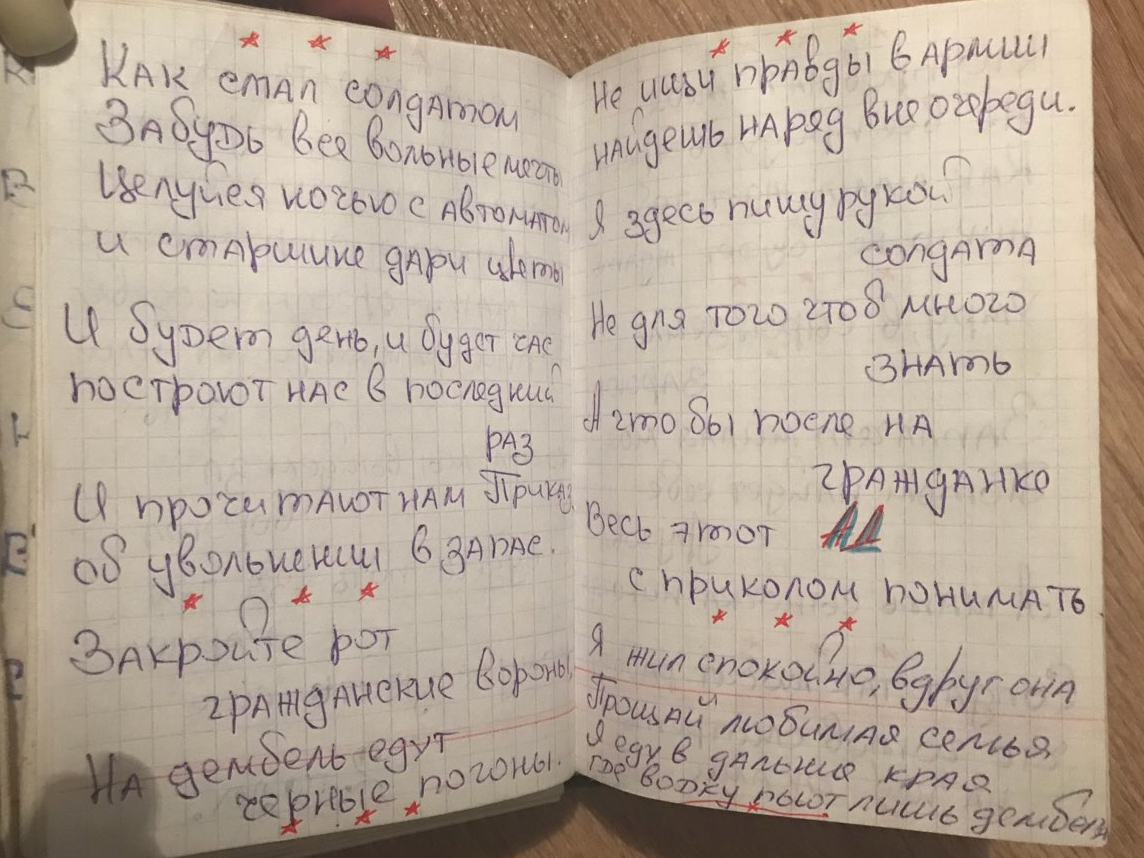 Как стал солдатом
Забудь все вольные мечты
Целуйся ночью с автоматом
и старшине дари цветы
И будет день, и будет час
построют нас в последний
раз
И прочитают нам Приказ
об увольнении в запас.
Закройте рот
гражданские вороны,
На дембель едут
черные погоны.
Не ищи правды в армии
найдешь наряд вне очереди.
Я здесь пишу рукой
солдата
Не для того чтоб много
знать
А что бы после на
гражданке
Весь этот АД
с приколом понимать
Я жил спокойно, вдруг она
Прощай любимая семья
Я еду в дальние края
где водку пьют лишь дембеля